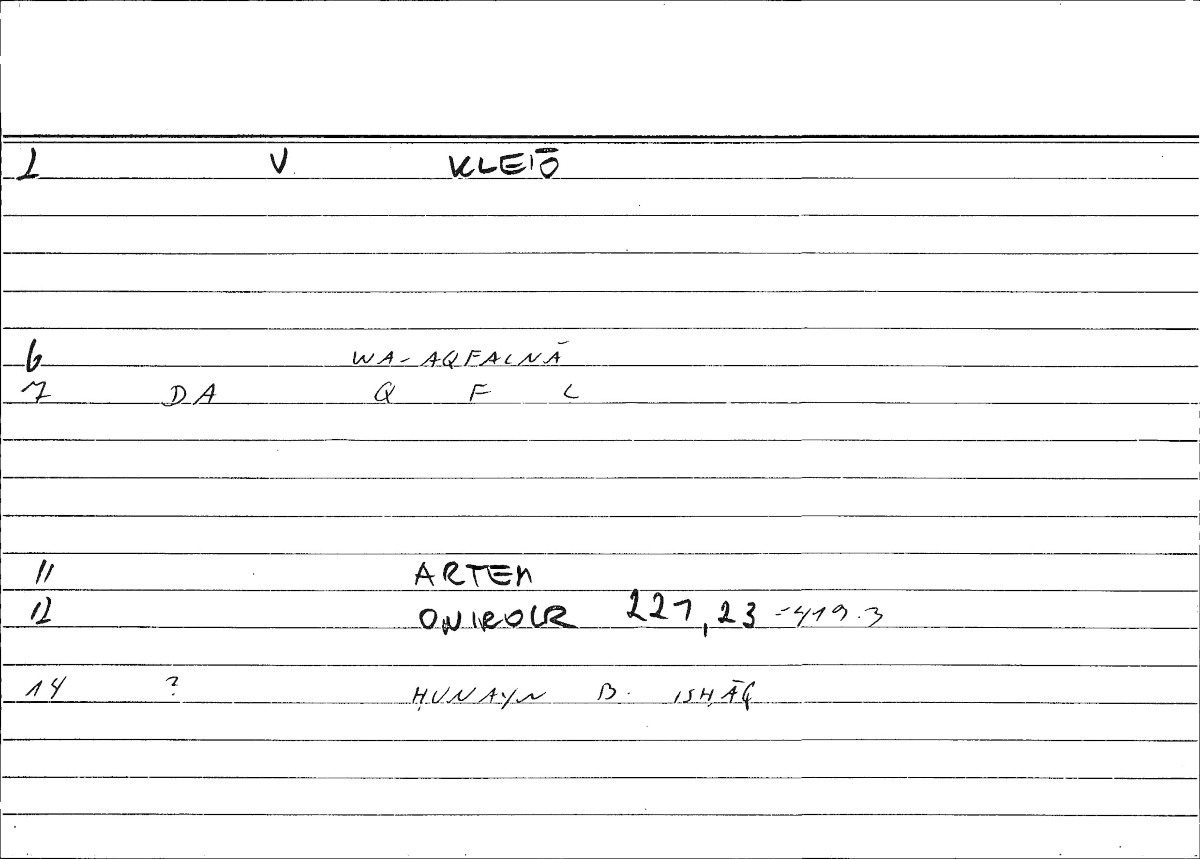 1 V KLEIŌ
6 WA-AQFALNĀ
7 DA Q F L
11 ARTEM
12 ONIROCR 227,23 = 419.3
14 ? ḤUNAYN B. ISḤĀQ